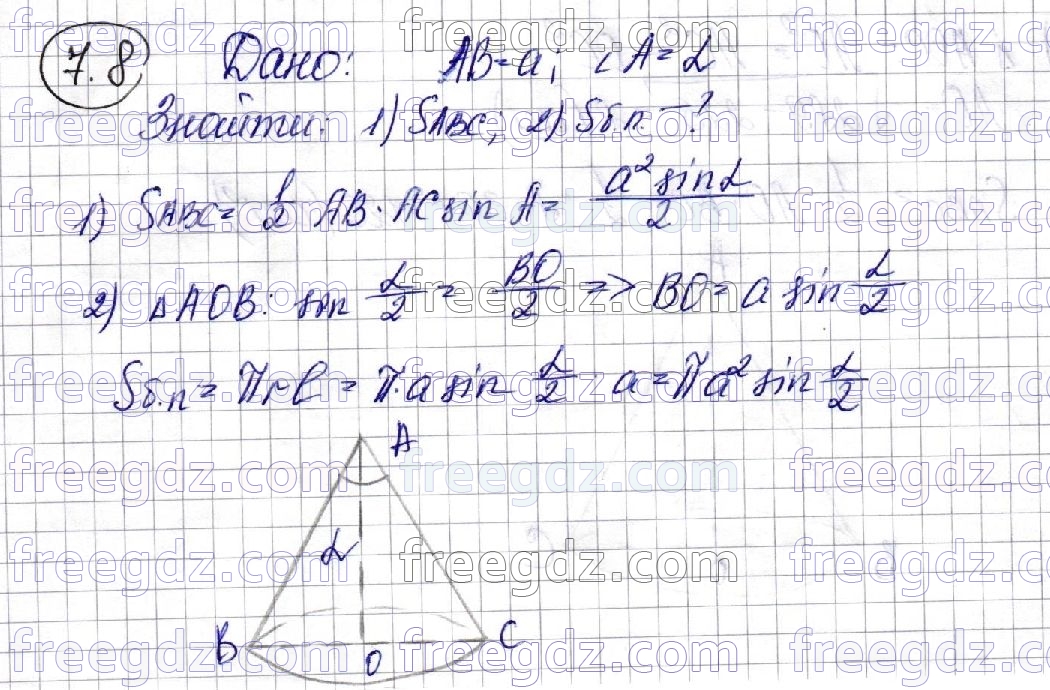 7.8 Дано: AB=a; ∠A=α
Знайти: 1) SABC; 2) Sб.п. –?
1) SABC= 1/2 AB·AC sin A= a² sinα / 2
2) ΔAOB: sin α/2 = BO/2 => BO= a sin α/2
Sб.п= πrl = π·a sin α/2 · a = πa² sin α/2
A
α
B O C
freegdz.com